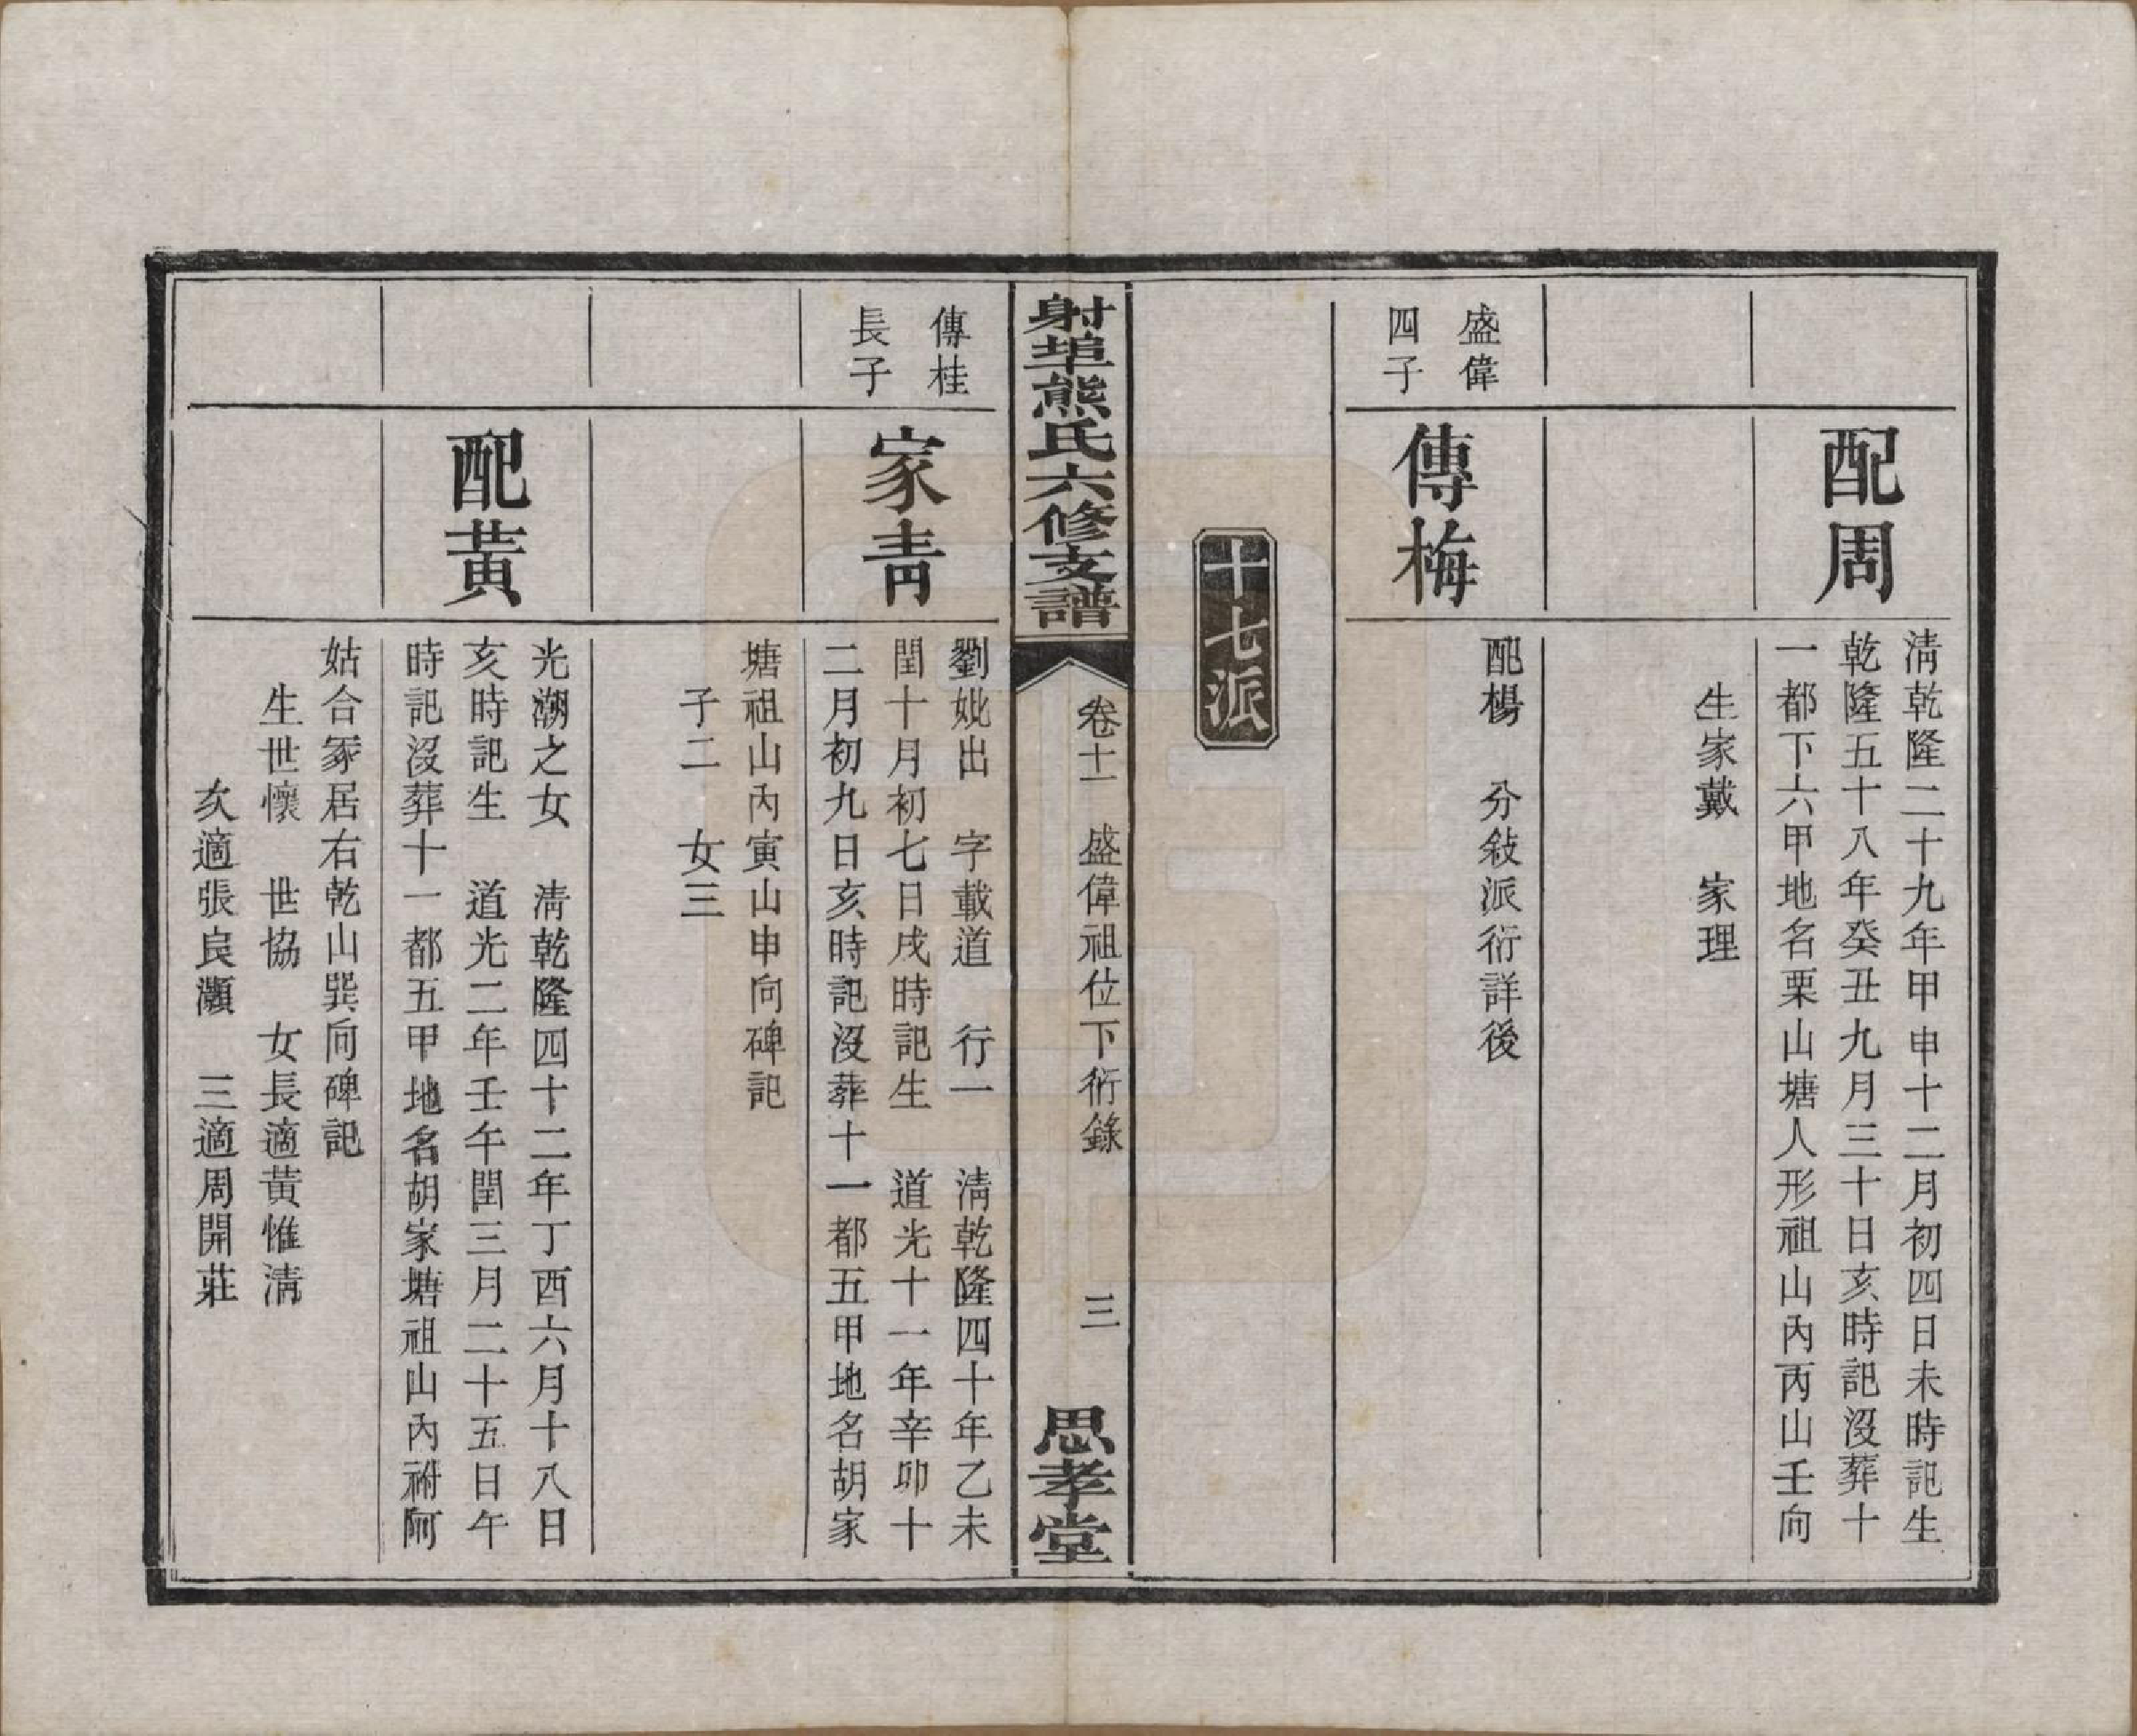 配周
淸乾隆二十九年甲申十二月初四日未時記生
乾隆五十八年癸丑九月三十日亥時記沒葬十
一都下六甲地名栗山塘人形祖山內丙山壬向
生家戴　家理
盛偉
四子
傳梅
配楊　分敍派衍詳後
十七派
射埠熊氏六修支譜
卷十一　盛偉祖位下衍錄　　三
思孝堂
傳桂
長子
家靑
劉妣出　字載道　行一　淸乾隆四十年乙未
閏十月初七日戌時記生　道光十一年辛卯十
二月初九日亥時記沒葬十一都五甲地名胡家
塘祖山內寅山申向碑記
子二　女三
配黃
光潮之女　淸乾隆四十二年丁酉六月十八日
亥時記生　道光二年壬午閏三月二十五日午
時記沒葬十一都五甲地名胡家塘祖山內祔阿
姑合冢居右乾山巽向碑記
生世懷　世協　女長適黃惟淸
次適張良灝　三適周開莊